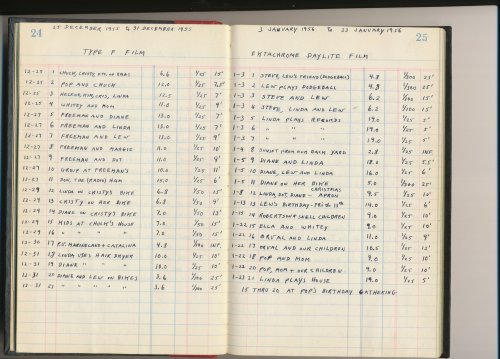 24
25 DECEMBER 1955 to 31 DECEMBER 1955
TYPE F FILM
12-25 1 CHUCK, CRISTY, ETC. ON 6.6 1/25 15'
12-25 2 POP AND CHUCK 12.0 1/25 7.5'
12-25 3 LINDA 12.5 1/25 7'
12-25 4 WHITEY AND MOM 11.0 1/25 9'
12-27 5 FREEMAN AND DIANE 13.0 1/25 7'
12-27 6 FREEMAN AND LINDA 13.0 1/25 7'
12-27 7 FREEMAN AND LEW 13.0 1/25 7'
12-27 8 FREEMAN AND MARGIE 11.0 1/25 10'
12-27 9 FREEMAN AND DOT 11.0 1/25 9'
12-27 10 GROUP AT FREEMAN'S 10.0 1/25 11'
12-27 11 DON, THE (RADIO) HAM 16.0 1/25 6'
12-29 12 LINDA ON CRISTY'S BIKE 6.8 1/50 15'
12-29 13 CRISTY ON HER BIKE 6.8 1/50 9'
12-29 14 DIANE ON CRISTY'S BIKE 7.0 1/50 13'
12-29 15 KIDS AT CHULM'S HOUSE 7.0 1/50 15'
12-29 16 " " 7.0 1/50 15'
12-30 17 P.V. MARINELAND + CATALINA 4.8 1/100 INF.
12-31 18 LINDA USES HAIR DRYER 10.0 1/25 10'
12-31 19 DIANE " " " 10.0 1/25 10'
12-31 20 DIANE AND LEW ON BIKES 3.6 1/100 25'
12-31 21 " " " " " 3.6 1/100 25'
3 JANUARY 1956 TO 23 JANUARY 1956
25
EKTACHROME DAYLITE FILM
1-3 1 STEVE, LEW'S FRIEND (DODGEBALL) 4.8 1/300 25'
1-3 2 LEW PLAYS DODGEBALL 4.8 1/300 25'
1-3 3 STEVE AND LEW 6.2 1/100 15'
1-3 4 STEVE, LINDA AND LEW 6.2 1/100 15'
1-3 5 LINDA PLAYS RECORDS 19.0 1/25 5'
1-3 6 " " " 19.0 1/25 5'
1-3 7 " " " 19.0 1/25 5'
1-4 8 SUNSET FROM OUR BACK YARD 2.8 1/25 INF.
1-5 9 DIANE AND LINDA 18.0 1/25 5.5'
1-5 10 DIANE, LEW AND LINDA 16.0 1/25 6'
1-5 11 DIANE ON HER BIKE 5.0 1/300 25'
1-8 12 LINDA, DOT, DIANE - CHRISTMAS APRONS 9.0 1/25 10'
1-13 13 LEW'S BIRTHDAY - FRI. 13th 14.0 1/25 6'
1-15 14 ROBERTSON + SHELL CHILDREN 7.0 1/25 10'
1-22 15 ELLA AND WHITEY 9.0 1/25 10'
1-22 16 ORVAL AND LINDA 11.0 1/25 9'
1-22 17 ORVAL AND OUR CHILDREN 10.5 1/25 12'
1-22 18 POP AND MOM 9.0 1/25 10'
1-22 20 POP, MOM + OUR CHILDREN 9.0 1/25 10'
1-23 21 LINDA PLAYS HOUSE 19.0 1/25 5'
15 THRU 20 AT POP'S BIRTHDAY GATHERING